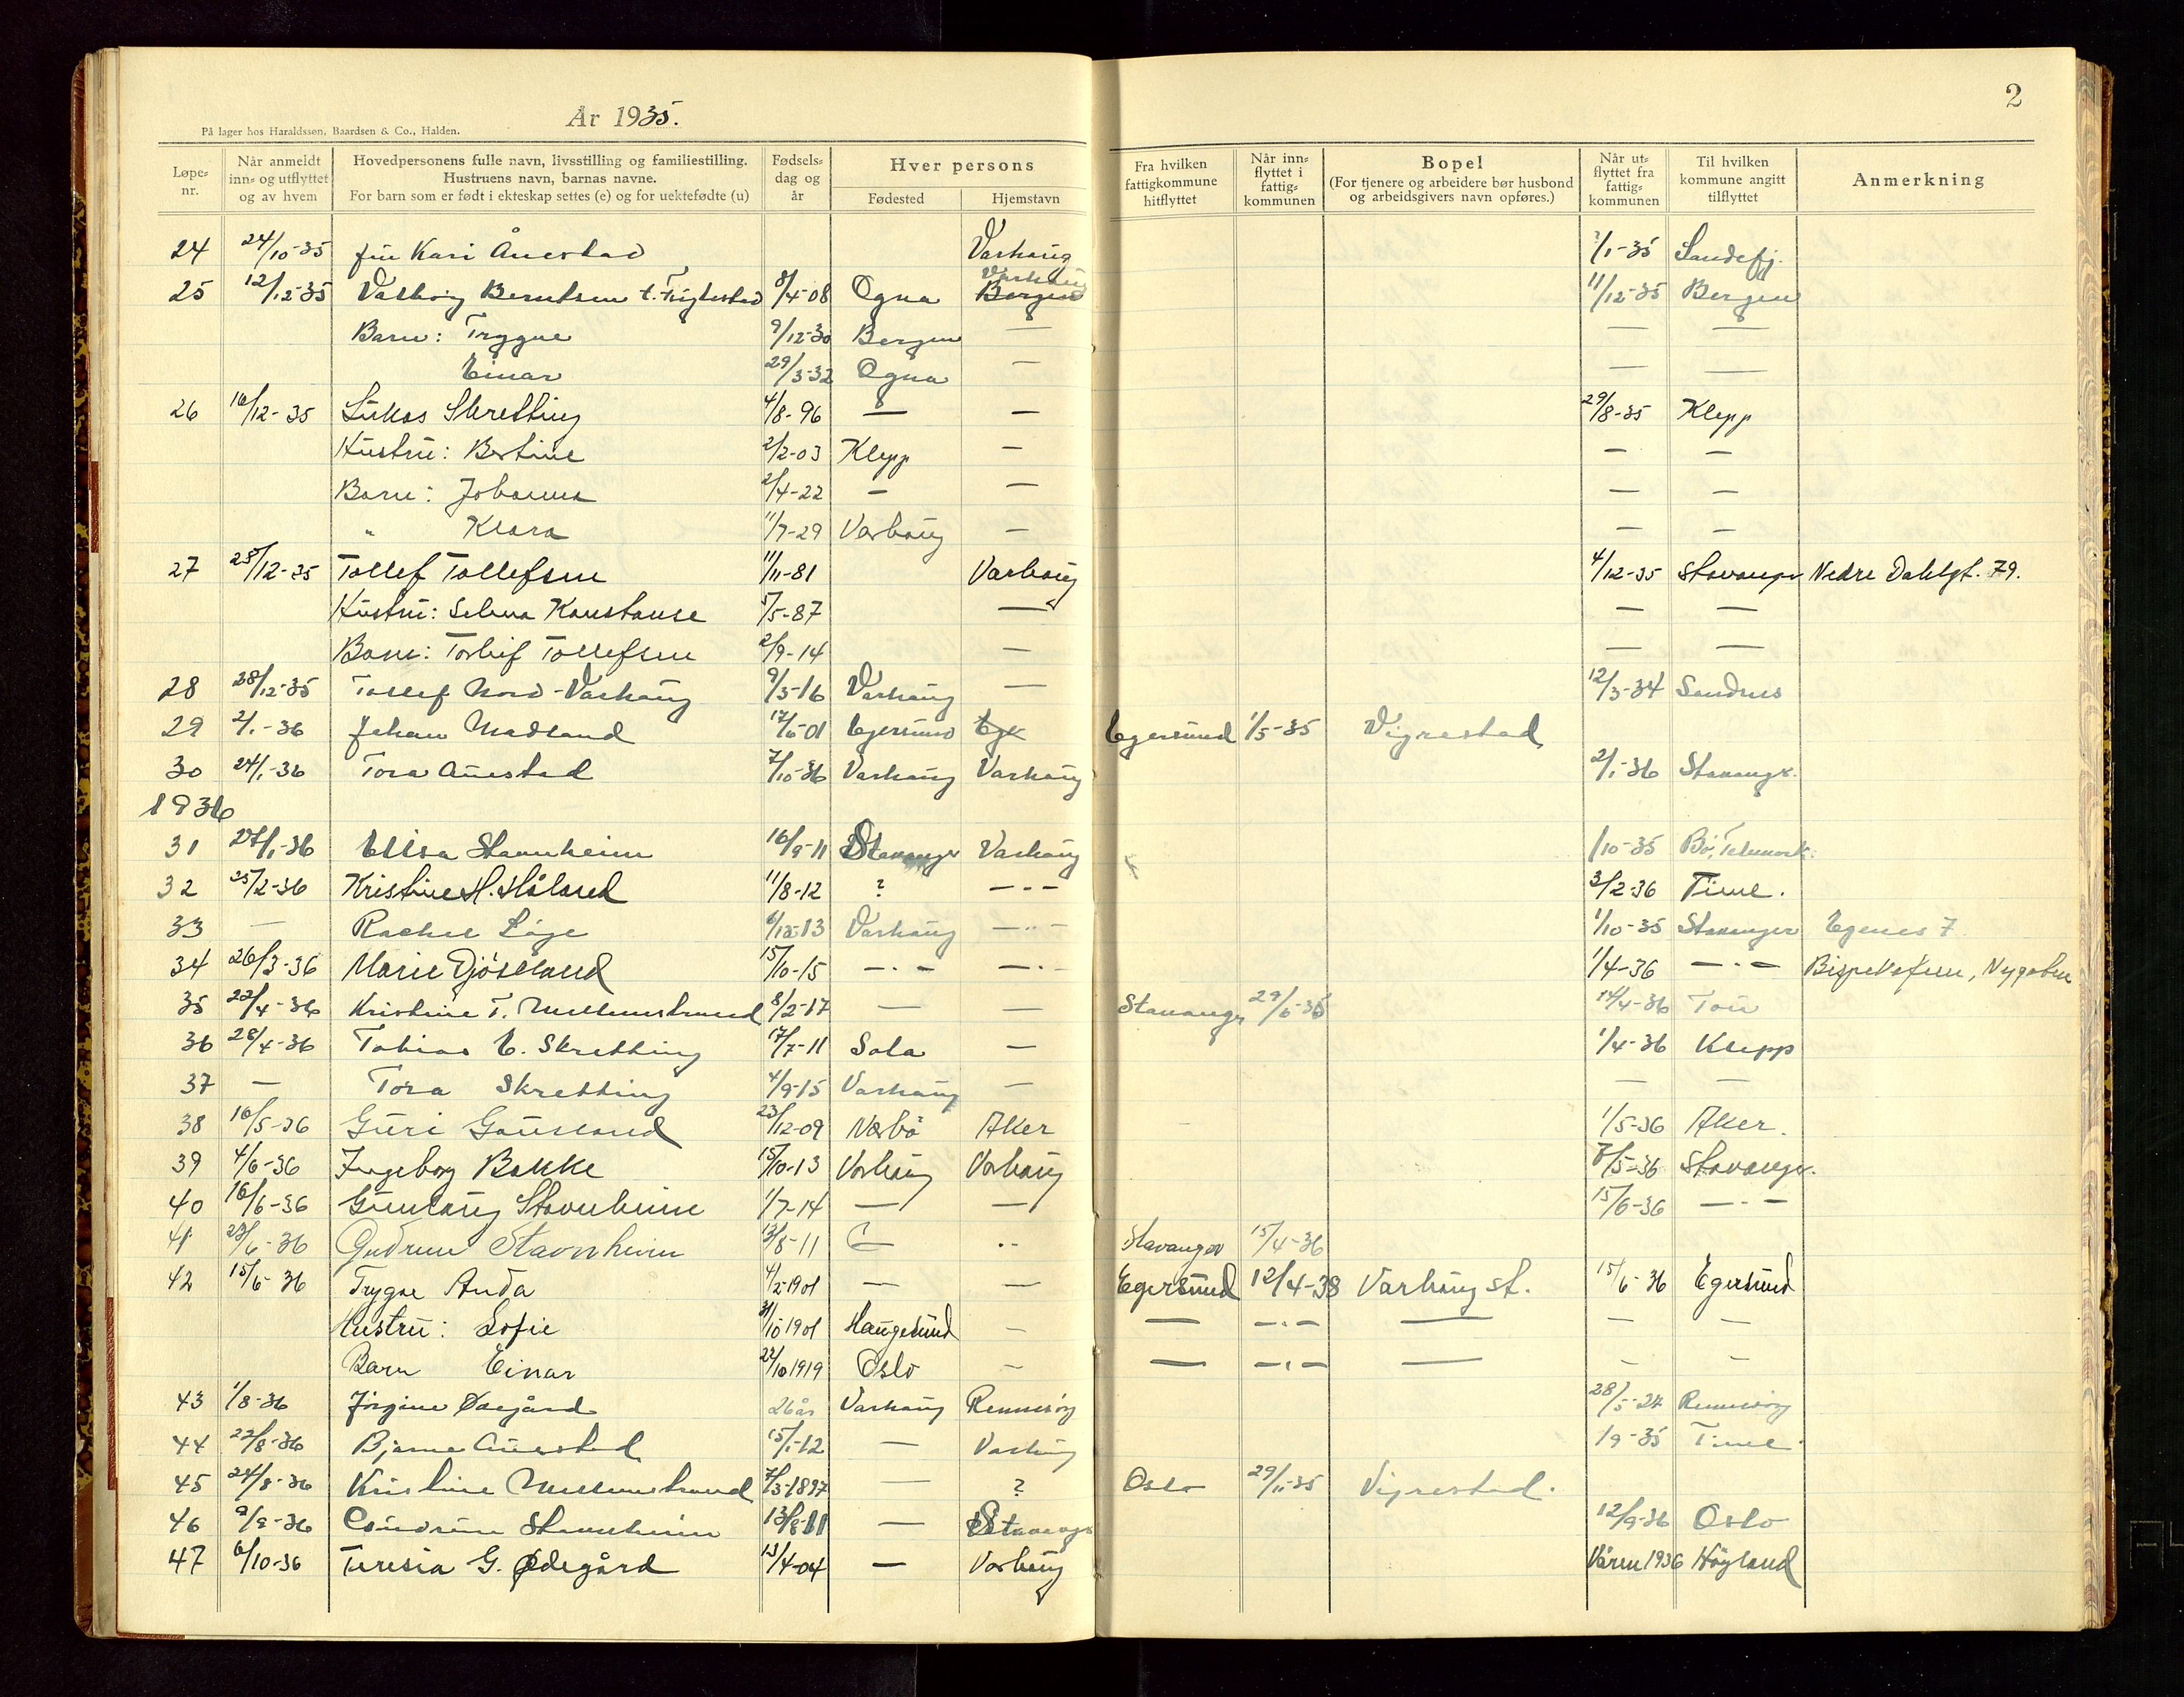 2
År 1935.
På lager hos Haraldssen, Baardsen & Co., Halden.
Løpe-nr. | Når anmeldt inn- og utflyttet og av hvem | Hovedpersonens fulle navn, livsstilling og familiestilling. Hustruens navn, barnas navne. For barn som er født i ekteskap settes (e) og for uektefødte (u) | Fødsels-dag og år | Hver persons Fødested | Hjemstavn | Fra hvilken fattigkommune hitflyttet | Når inn-flyttet i fattig-kommunen | Bopel (For tjenere og arbeidere bør husbond og arbeidsgivers navn opføres.) | Når ut-flyttet fra fattig-kommunen | Til hvilken kommune angitt tilflyttet | Anmerkning
24 24/10-35 fru Kari Ånestad Varhaug ?/1-35 Sandefj.
25 12/12-35 Valborg Berntsen f. 8/4-08 Ogna Bergen Varhaug 11/12-35 Bergen
Barn: Trygve 9/12-30 Bergen — — —
Einar 29/3-32 Ogna — — —
26 16/12-35 Lukas Skretting 4/8-96 — — 29/8-35 Klepp
Hustru: Bertine 2/2-03 Klepp — — —
Barn: Johanna 2/4-22 — — — —
" Klara 11/7-29 Varhaug — — —
27 28/12-35 Tollef Tollefsen 11/11-81 Varhaug 4/12-35 Stavanger Nedre Dahlgt. 79.
Hustru: Selma Konstanse 5/5-87 — — —
Barn: Torleif Tollefsen 2/9-14 — — —
28 28/12-35 Tollef Nord-Varhaug 9/3-16 Varhaug — 12/3-34 Sandnes
29 2/1-36 Johan Madland 17/6-01 Egersund Egs Egersund 1/5-35 Vigrestad
30 24/1-36 Tora Auestad 7/10-36 Varhaug Varhaug 2/1-36 Stavanger.
1936
31 27/1-36 Elisa Stavnheim 16/9-11 Stavanger Varhaug 1/10-35 Bø, Telemark.
32 25/2-36 Kristine H. Håland 11/8-12 ? —"— 3/2-36 Time.
33 — Rachel Låge 6/12-13 Varhaug —"— 1/10-35 Stavanger Egenes 7
34 26/3-36 Marie Djösland 15/10-15 —"— —"— 1/4-36 —"— Nygaten
35 22/4-36 Kristine T. Mellemstrand 8/2-17 — — Stavanger 29/6-35 14/4-36 Tou
36 28/4-36 Tobias E. Skretting 17/7-11 Sola — 1/4-36 Klepp
37 — Tora Skretting 4/9-15 Varhaug — — —
38 16/5-36 Guri Gausland 23/12-09 Nærbø Aker 1/5-36 Aker.
39 4/6-36 Ingeborg Bakke 15/10-13 Varhaug Varhaug 7/5-36 Stavanger.
40 16/6-36 Gunlaug Stavnheim 1/7-14 — — 15/6-36 —"—
41 23/6-36 Gudrun Stavnheim 13/8-11 — " Stavanger 15/4-36
42 15/6-36 Trygve Anda 4/2-1901 — — Egersund 12/4-38 Varhaug st. 15/6-36 Egersund
Hustru: Sofie 31/10 1901 Haugesund — — —"— — — —
Barn Einar 22/10 1919 Oslo — — —"— — — —
43 1/8-36 Jörgine Ødegård 26 år Varhaug Rennesøy 28/5-24 Rennesøy
44 22/8-36 Bjarne Auestad 15/1-12 — Varhaug 1/9-35 Time.
45 24/8-36 Kristine Mellemstrand 7/3-1897 — ? Oslo 29/11-35 Vigrestad.
46 9/9-36 Gudrun Stavnheim 13/8-11 — Stavanger 12/9-36 Oslo
47 6/10-36 Teresia G. Ødegård 13/4-04 — Varhaug Våren 1936 Høyland